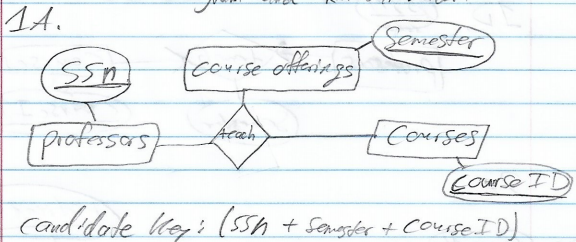 1A.
Semester
SSn
course offerings
professors
teach
Courses
Course ID
candidate key: (SSn + Semester + Course ID)